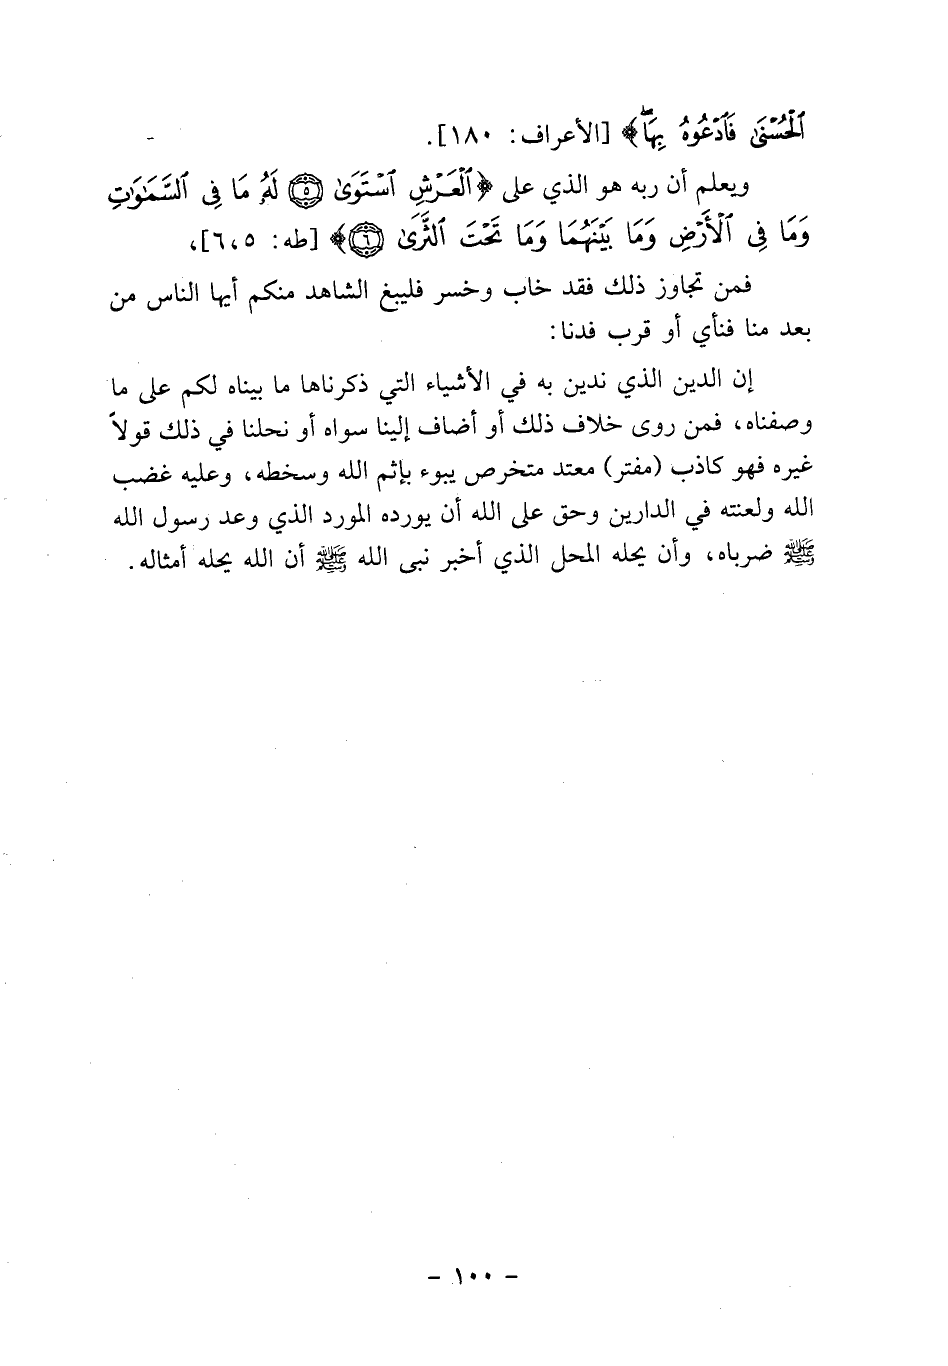 ٱلْحُسْنَىٰ فَٱدْعُوهُ بِهَاۖ﴾ [الأعراف: ١٨٠].
ويعلم أن ربه هو الذي على ﴿ٱلْعَرْشِ ٱسْتَوَىٰ ۝٥ لَهُۥ مَا فِى ٱلسَّمَـٰوَٰتِ
وَمَا فِى ٱلْأَرْضِ وَمَا بَيْنَهُمَا وَمَا تَحْتَ ٱلثَّرَىٰ ۝٦﴾ [طه: ٥،٦]،
فمن تجاوز ذلك فقد خاب وخسر فليبغ الشاهد منكم أيها الناس من
بعد منا فنأي أو قرب فدنا:
إن الدين الذي ندين به في الأشياء التي ذكرناها ما بيناه لكم على ما
وصفناه، فمن روى خلاف ذلك أو أضاف إلينا سواه أو نحلنا في ذلك قولاً
غيره فهو كاذب (مفتر) معتد متخرص يبوء بإثم الله وسخطه، وعليه غضب
الله ولعنته في الدارين وحق على الله أن يورده المورد الذي وعد رسول الله
ﷺ ضرباه، وأن يحله المحل الذي أخبر نبى الله ﷺ أن الله يحله أمثاله.
- ١٠٠ -